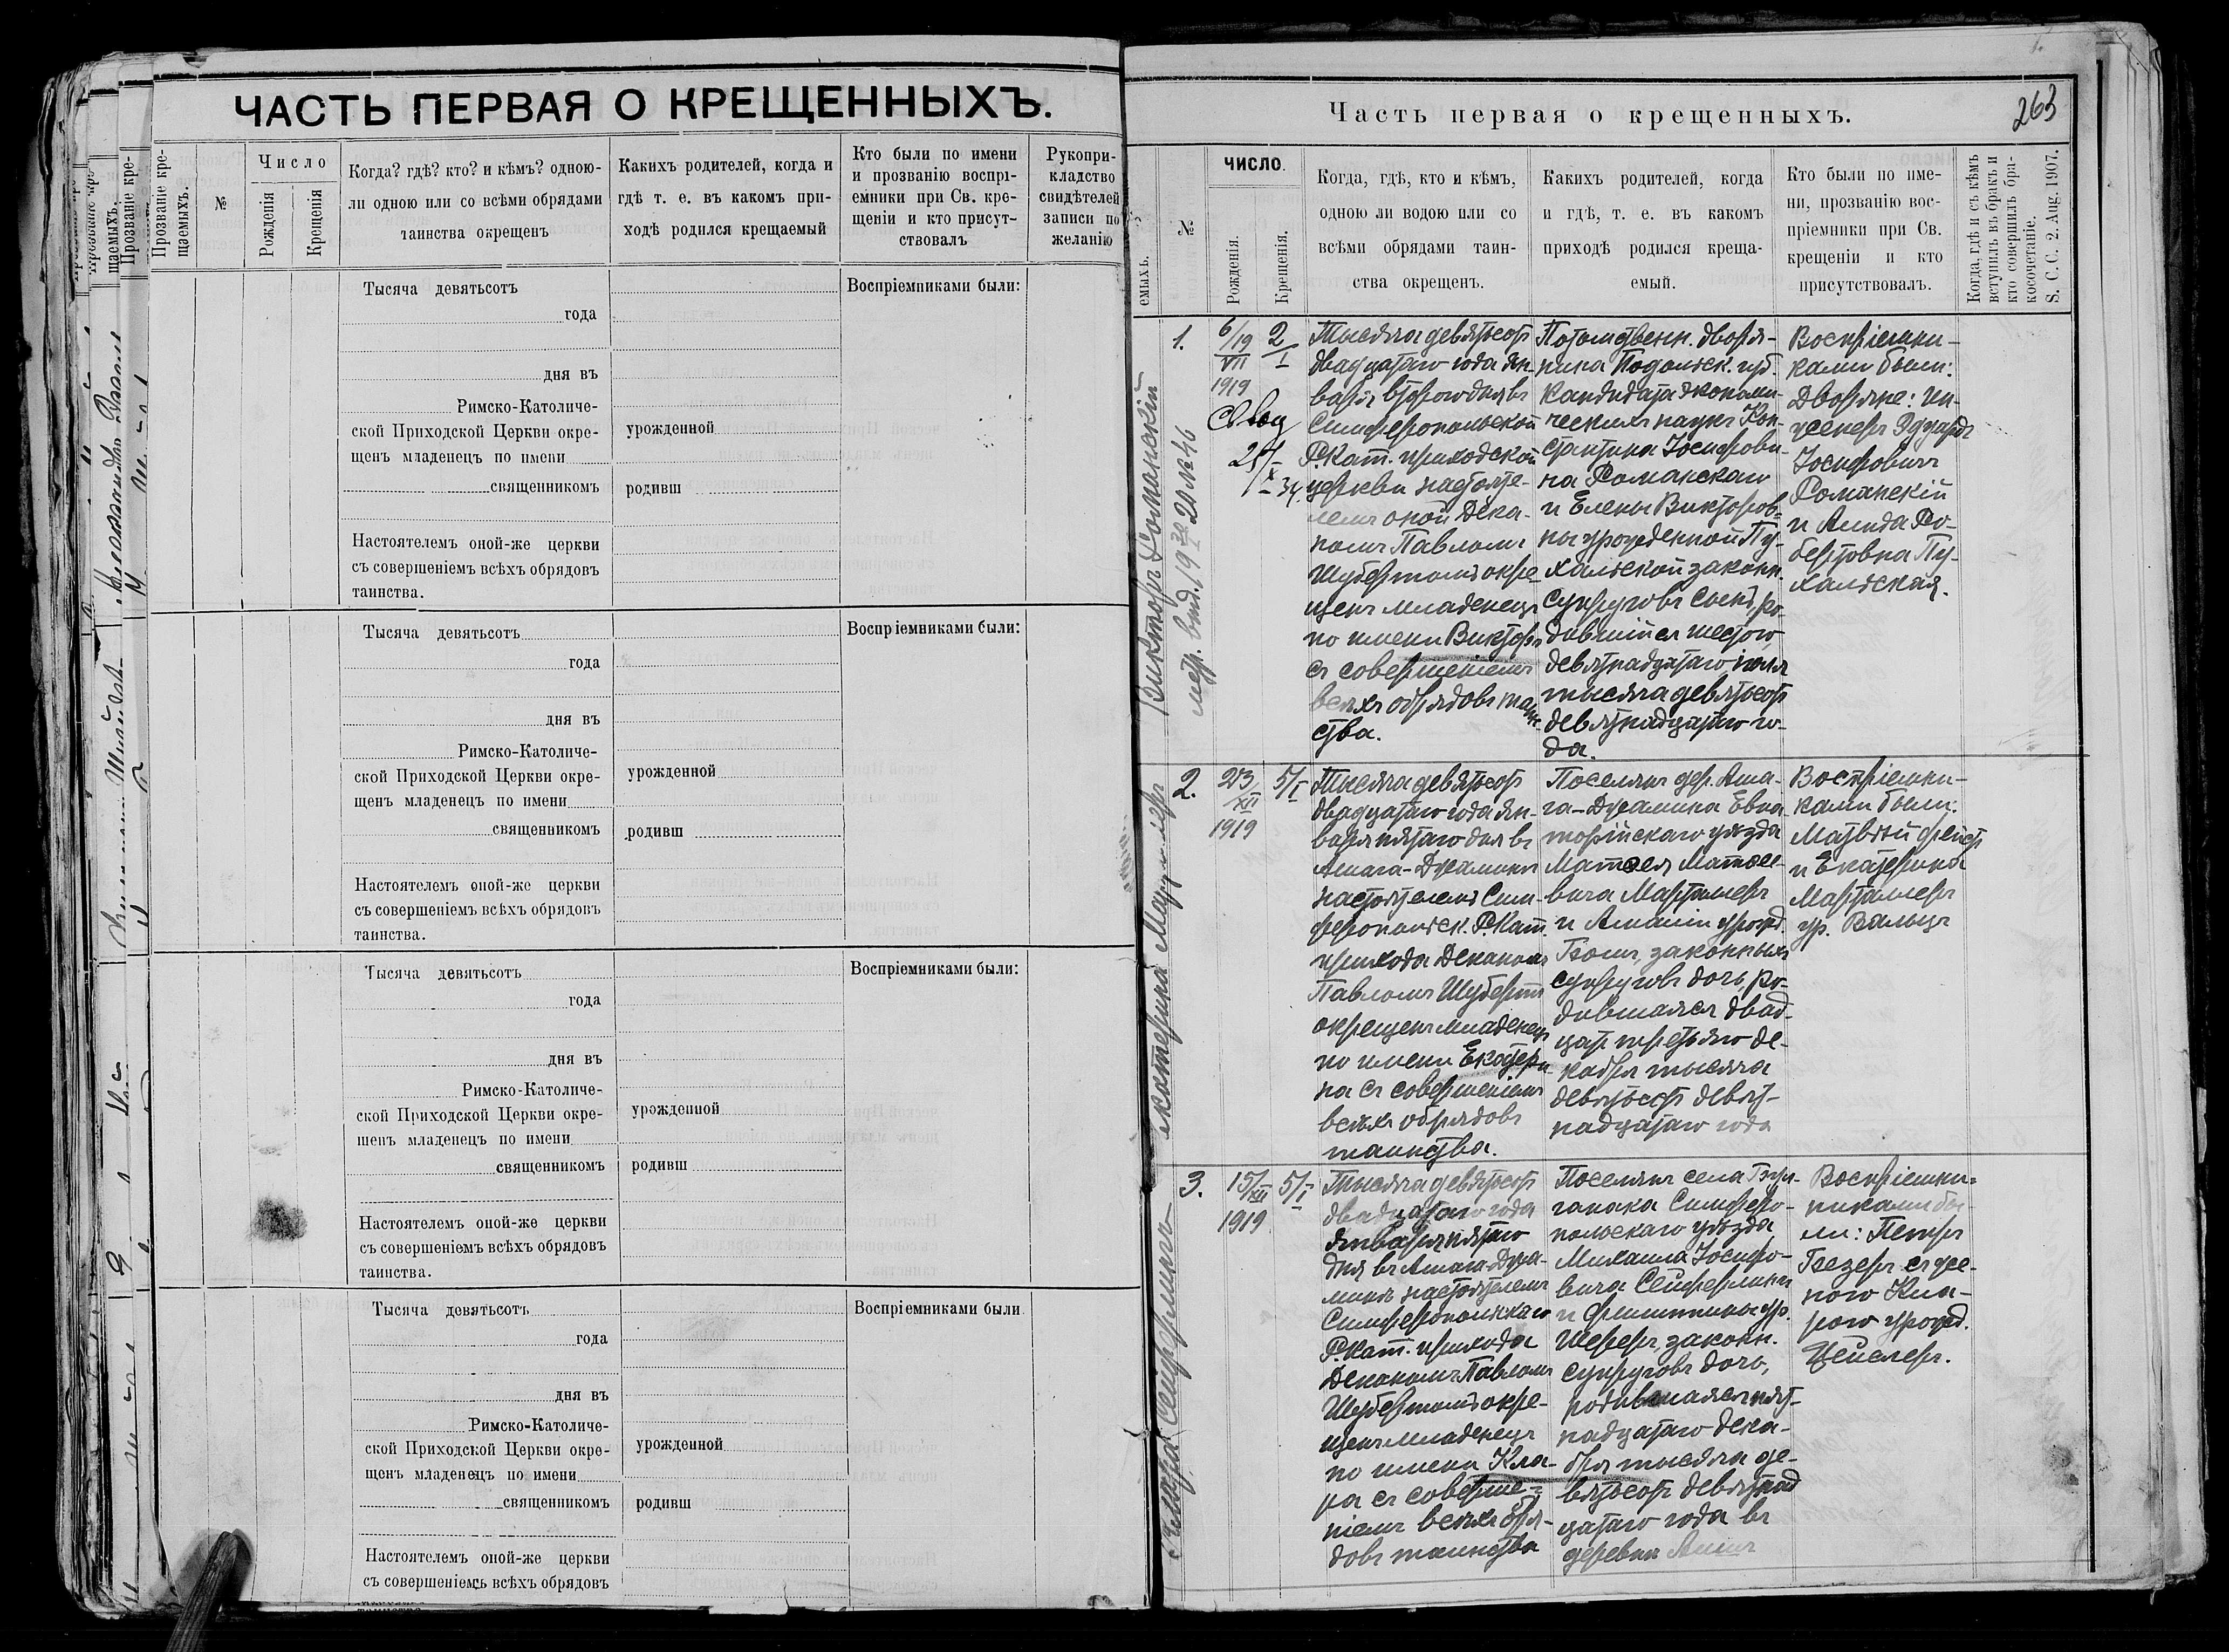 ЧАСТЬ ПЕРВАЯ О КРЕЩЕННЫХЪ.
Прозваніе кре-
щаемыхъ.
№
Число
Рожденія
Крещенія
Когда? гдѣ? кто? и кѣмъ? одною-
ли одною или со всѣми обрядами
таинства окрещенъ
Какихъ родителей, когда и
гдѣ т. е. въ какомъ при-
ходѣ родился крещаемый
Кто были по имени
и прозванію воспрі-
емники при Св. кре-
щеніи и кто присут-
ствовалъ
Рукопри-
кладство
свидѣтелей
записи по
желанію
Тысяча девятьсотъ
года
дня въ
Римско-Католиче-
ской Приходской Церкви окре-
щенъ младенецъ по имени
священникомъ
Настоятелемъ оной-же церкви
съ совершеніемъ всѣхъ обрядовъ
таинства.
урожденной
родивш
Воспріемниками были:
Тысяча девятьсотъ
года
дня въ
Римско-Католиче-
ской Приходской Церкви окре-
щенъ младенецъ по имени
священникомъ
Настоятелемъ оной-же церкви
съ совершеніемъ всѣхъ обрядовъ
таинства.
урожденной
родивш
Воспріемниками были:
Тысяча девятьсотъ
года
дня въ
Римско-Католиче-
ской Приходской Церкви окре-
щенъ младенецъ по имени
священникомъ
Настоятелемъ оной-же церкви
съ совершеніемъ всѣхъ обрядовъ
таинства.
урожденной
родивш
Воспріемниками были:
Тысяча девятьсотъ
года
дня въ
Римско-Католиче-
ской Приходской Церкви окре-
щенъ младенецъ по имени
священникомъ
Настоятелемъ оной-же церкви
съ совершеніемъ всѣхъ обрядовъ
урожденной
родивш
Воспріемниками были
Часть первая о крещенныхъ.
263
емыхъ.
№
ЧИСЛО.
Рожденія.
Крещенія.
Когда, гдѣ, кто и кѣмъ,
одною ли водою или со
всѣми обрядами таин-
ства окрещенъ.
Какихъ родителей, когда
и гдѣ, т. е. въ какомъ
приходѣ родился креща-
емый.
Кто были по име-
ни, прозванію вос-
пріемники при Св.
крещеніи и кто
присутствовалъ.
Когда, гдѣ и съ кѣмъ
вступилъ въ бракъ и
кто совершилъ бра-
косочетаніе.
S. C. C. 2. Aug. 1907.
Викторъ Романскій
метр. выд. 19 20 № 46
1.
6/19
VII
1919
2
I
Тысяча девятьсот
двадцатаго года ян-
варя второго дня въ
Симферопольской
Р.Кат. приходской
церкви настояте-
лемъ оной Дека-
номъ Павломъ
Шубертомъ окре-
щенъ младенецъ
по имени Викторъ
съ совершеніемъ
всѣхъ обрядовъ таин-
ства.
Потомственн. дворя-
нина Подольск. губ.
Кандидата экономи-
ческихъ наукъ Кон-
стантина Іосифови-
ча Романскаго
и Елены Викторов-
ны урожденной Пу-
хальской законн.
супруговъ сынъ, ро-
дившійся шестого,
девятнадцатаго іюля
тысяча девятьсот
девятнадцатаго го-
да.
Воспріемни-
ками были:
Дворяне: ин-
женеръ Эдуардъ
Іосифовичъ
Романскій
и Алида Ро-
бертовна Пу-
хальская.
2.
23
XII
1919
5/I
Тысяча девятьсот
двадцатаго года ян-
варя пятаго дня въ
Ашага-Джаминъ
настоятелемъ Сим-
феропольск. Р.Кат.
прихода Деканомъ
Павломъ Шубертомъ
окрещенъ младенецъ
по имени Екатери-
на съ совершеніемъ
всѣхъ обрядовъ
таинства.
Поселянъ дер. Аша-
га-Джамина Евпа-
торійскаго уѣзда
вича
законныхъ
супруговъ дочь, ро-
дившаяся двад-
цать третьяго де-
кабря тысяча
девятьсот девят-
надцатаго года
Воспріемни-
ками были:
и Екатерина
3.
15/XII
1919
5/I
Тысяча девятьсот
двадцатаго года
января пятаго
дня въ Ашага-Джа-
минъ настоятелемъ
Симферопольскаго
Р.Кат. прихода
Деканомъ Павломъ
Шубертомъ окре-
щенъ младенецъ
по имени Кла-
ра съ соверше-
ніемъ всѣхъ обря-
довъ таинства
Поселянъ села
Симферо-
польскаго уѣзда
Михаила Іосифо-
вича
законн.
супруговъ дочь,
родившаяся пят-
надцатаго дека-
бря тысяча де-
вятьсот девятнад
цатаго года въ
деревни
Воспріемни-
никами бы-
ли: Петръ
съ же-
ною Кла-
рою урожд.